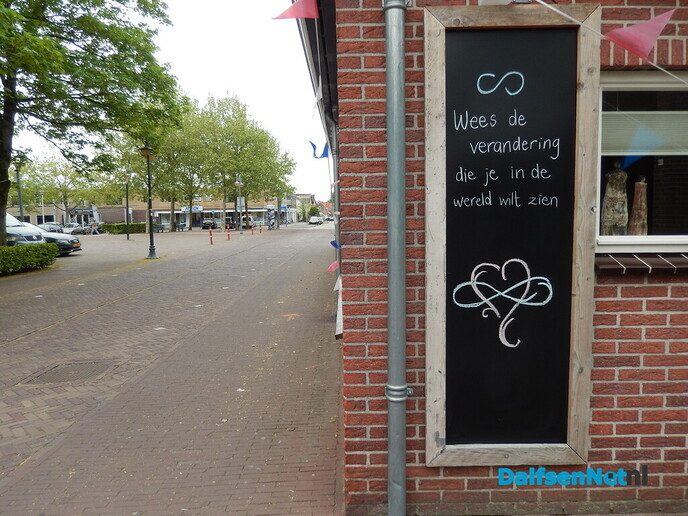 Wees de
verandering
die je in de
wereld wilt zien
DalfsenNet.nl